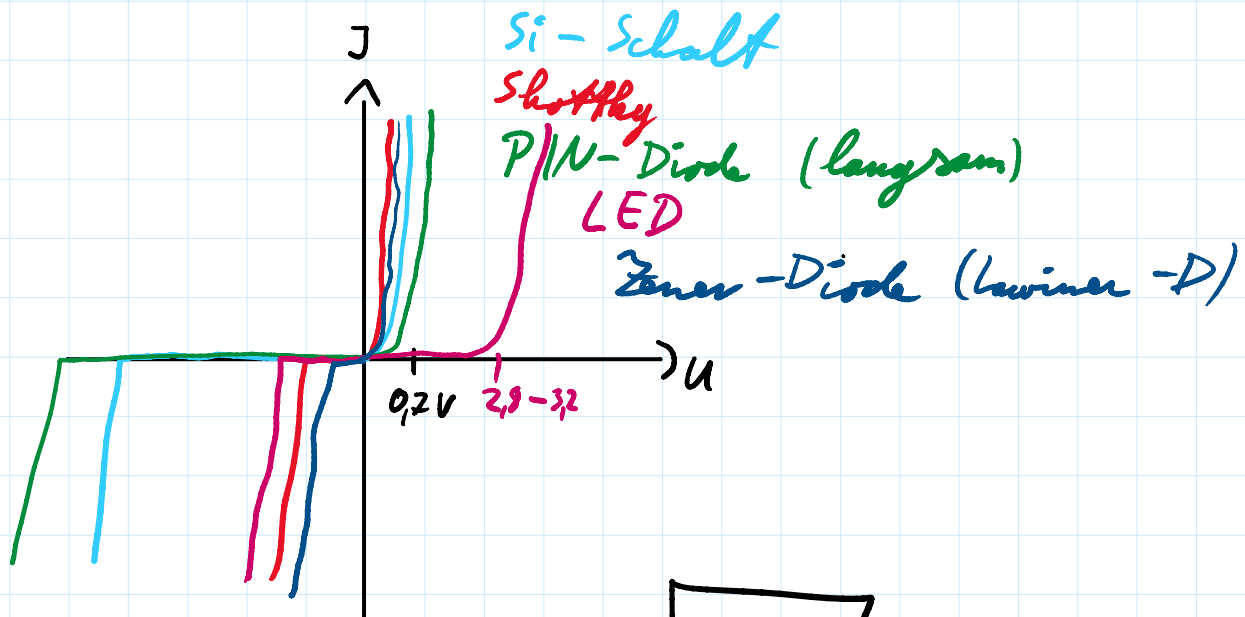 J
Si - Schalt
Shottky
PIN - Diode (langsam)
LED
Zener - Diode (Lawinen - D)
U
0,7 V
2,8 - 3,2